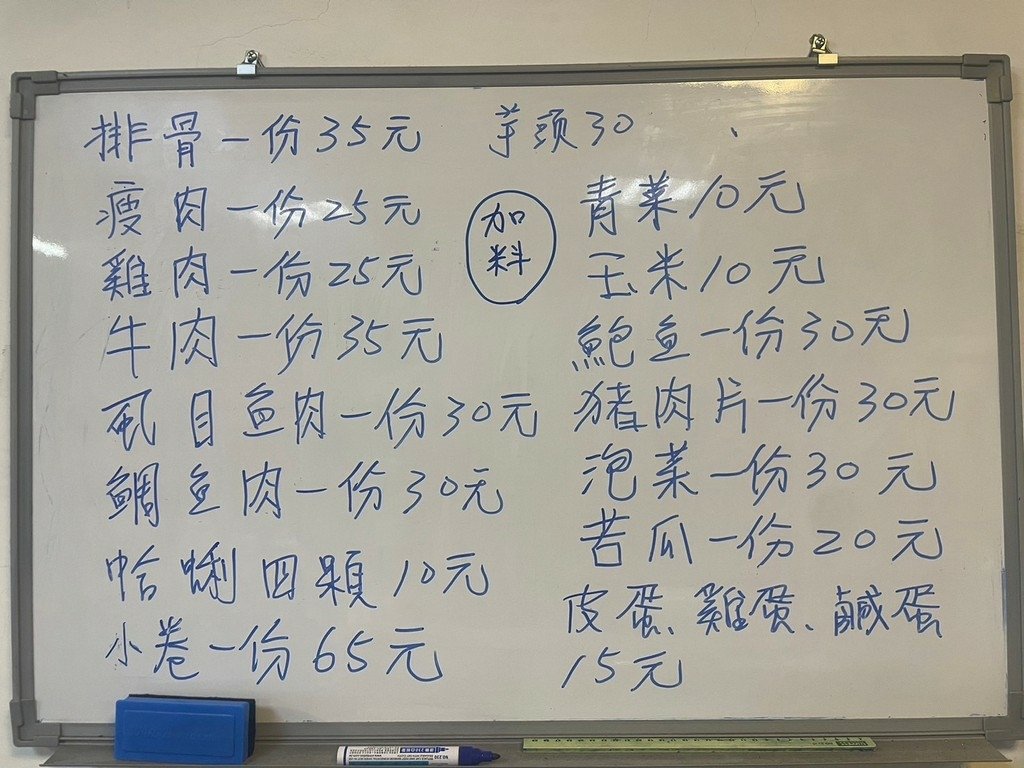 排骨一份35元
瘦肉一份25元
雞肉一份25元
牛肉一份35元
虱目鱼肉一份30元
鯛鱼肉一份30元
蛤蜊四顆10元
小卷一份65元
芋頭30
加
料
青菜10元
玉米10元
鮑鱼一份30元
豬肉片一份30元
泡菜一份30元
苦瓜一份20元
皮蛋、雞蛋、鹹蛋
15元